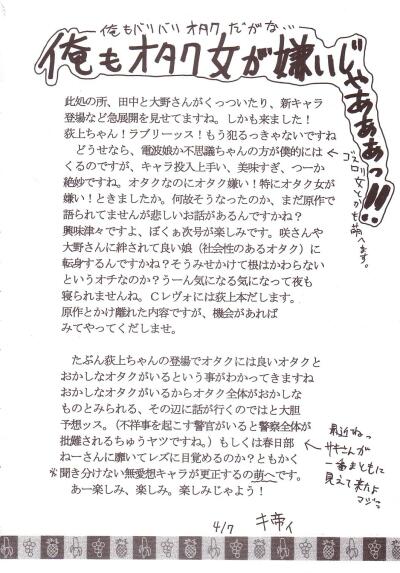 俺もバリバリオタクだがな…
俺もオタク女が嫌いじゃあああっ!!
此処の所、田中と大野さんがくっついたり、新キャラ
登場など急展開を見せてますね。しかも来ました!
荻上ちゃん!ラブリーッス!もう犯るっきゃないですね
どうせなら、電波娘か不思議ちゃんの方が僕的には
くるのですが、キャラ投入上手い、美味すぎ、つーか
絶妙ですね。オタクなのにオタク嫌い!特にオタク女が
嫌い!ときましたか。何故そうなったのか、まだ原作で
語られてませんが悲しいお話があるんですかね?
興味津々ですよ、ぼくぁ次号が楽しみです。咲さんや
大野さんに絆されて良い娘(社会性のあるオタク)に
転身するんですかね?そうみせかけて根はかわらない
というオチなのか?うーん気になる気になって夜も
寝られませんね。Cレヴォには荻上本だします。
原作とかけ離れた内容ですが、機会があれば
みてやってくだしませ。
←ゴスロリ女とかも萌へます。
たぶん荻上ちゃんの登場でオタクには良いオタクと
おかしなオタクがいるという事がわかってきますね
おかしなオタクがいるからオタク全体がおかしな
ものとみられる、その辺に話が行くのではと大胆
予想ッス。(不祥事を起こす警官がいると警察全体が
批難されるちゅうヤツですね。)もしくは春日部
ねーさんに靡いてレズに目覚めるのか?ともかく
※聞き分けない無愛想キャラが更正するの萌へです。
あー楽しみ、楽しみ。楽しみじゃよう!
最近ねっ
←サキさんが
一番まともに
見えて来たよ
マジで
4/7